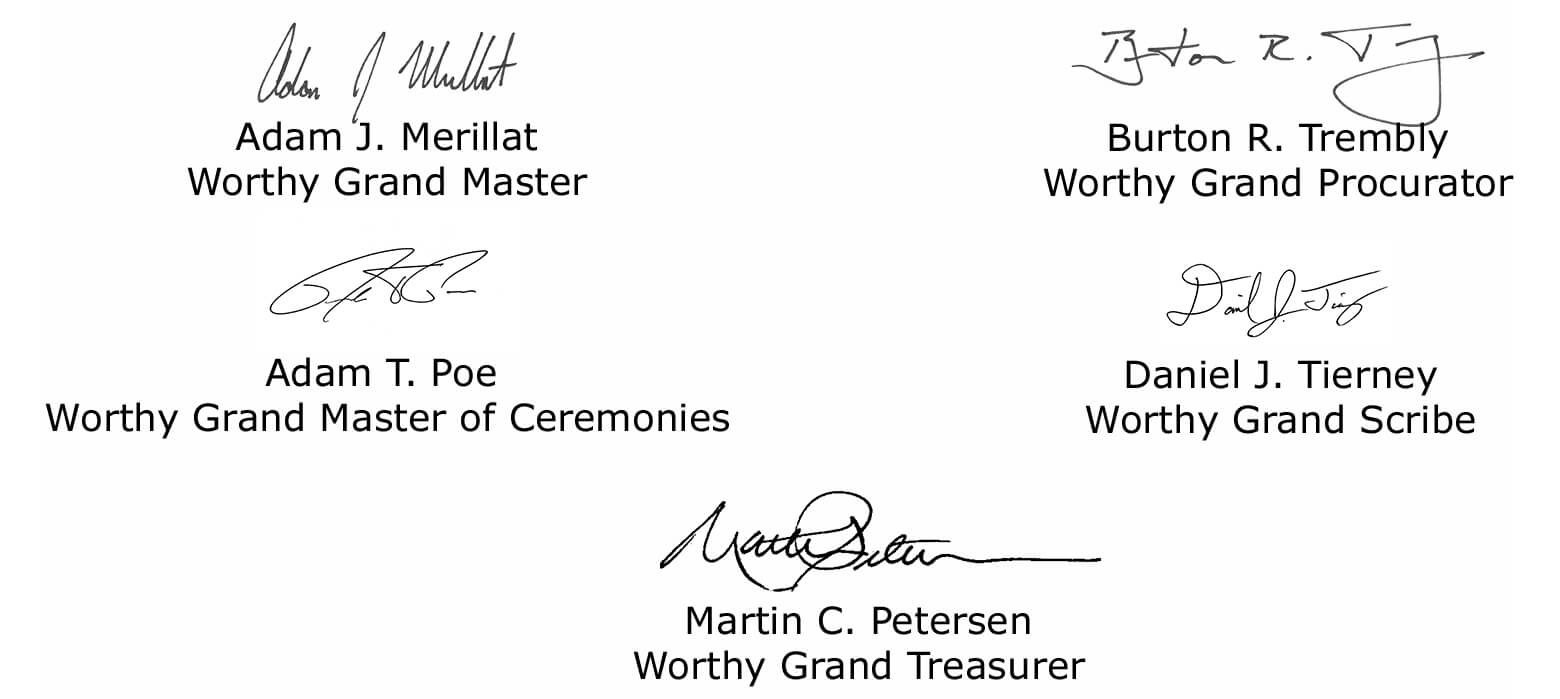 Adam J Merillat
Adam J. Merillat
Worthy Grand Master
Burton R. T
Burton R. Trembly
Worthy Grand Procurator
Adam T. Poe
Worthy Grand Master of Ceremonies
Daniel J. Tierney
Daniel J. Tierney
Worthy Grand Scribe
Martin C. Petersen
Worthy Grand Treasurer